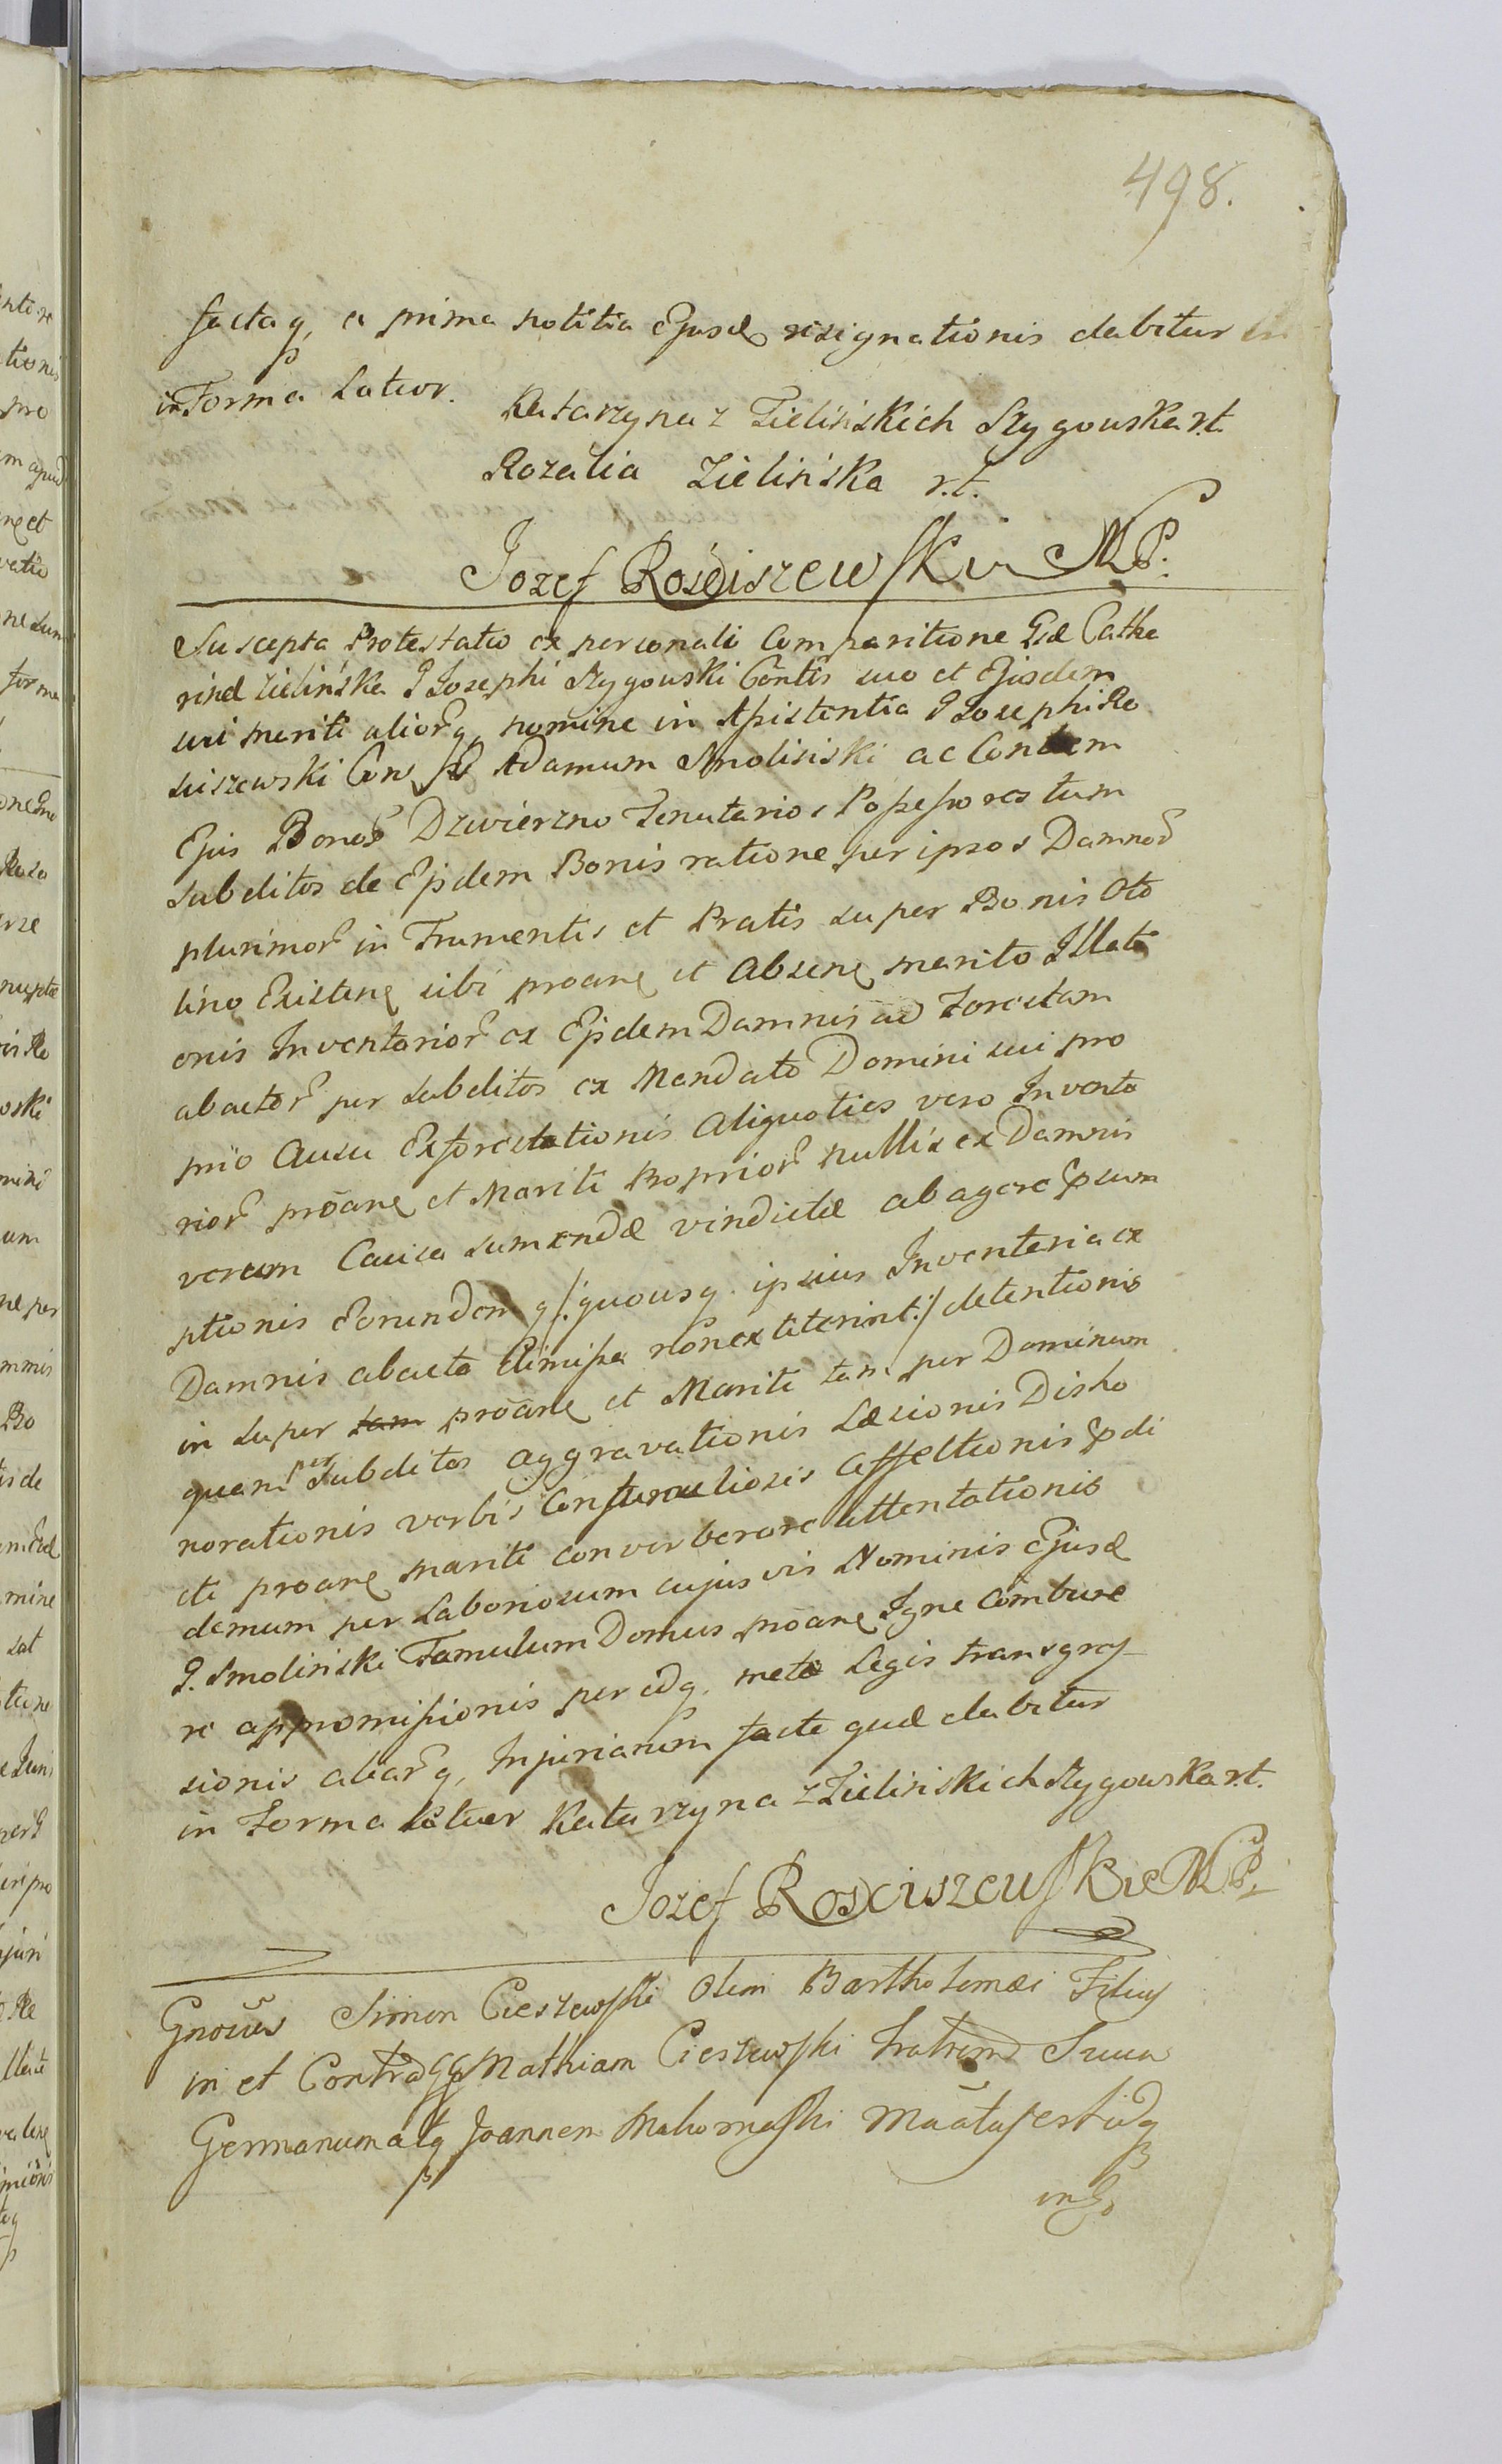 498.
facta q, a prima notitia Ejusd resignationis dabitur in
in Forma Latior.
Katarzyna z Zielińskich Szygowska r.t.
Rozalia Zielińska r.t.
Jozef Rosciszewski MP.
Suscepta Protestatio ex personali Comparitione Gsæ Cathe
rinæ Zielińska G Josephi Szygowski Contis suo et Ejusdem
sui Mariti alior q, nomine in Assistentia G Josephi Ro
sciszewski Con G Adamum Smolinski ac Contem
Ejus Bonor Dzwierzno Tenutarios Possessores tum
subditos de Eisdem Bonis ratione per ipsos Damnor
plurimor in Frumentis et Pratis super Bonis Oto
lino Existen sibi proane et Absene marito Illati
onis Inventarior ex Eisdem Damnis ad Forestam
abactor per subditos ex Mandato Domini sui pro
prio Ausu Exforestationis Aliquoties vero Inventa
rior proane et Mariti Proprior nullis ex Damnis
verum Causa sumendæ vindictæ abagere præsum
ptionis Eorundem q /: quousq. ipsius Inventaria ex
Damnis abacta Elimissa non extiterint :/ detentionis
in super tam proane et Mariti tam per Dominum
quam per Subditos aggravationis Læsionis Disho
norationis verbis Contumeliosis Affectionis prædi
cti proane mariti converberare attentationis
demum per Laboriosum cujusvis Nominis Ejusd
G. Smolinski Famulum Domus proane Igne Combure
re appromissionis per id q. meta Legis transgres
sionis aliar q, Injuriarum facta quæ dabitur
in Forma Latior Katarzyna z Zielinskich Szygowska r.t.
Jozef Rosciszewski MP.
Gnosus Simon Cieszewski Olim Bartholomæi Filius
in et Contra GG Mathiam Cieszewski Fratrem Suum
Germanum atq Joannem Makomaski Maata fert id q